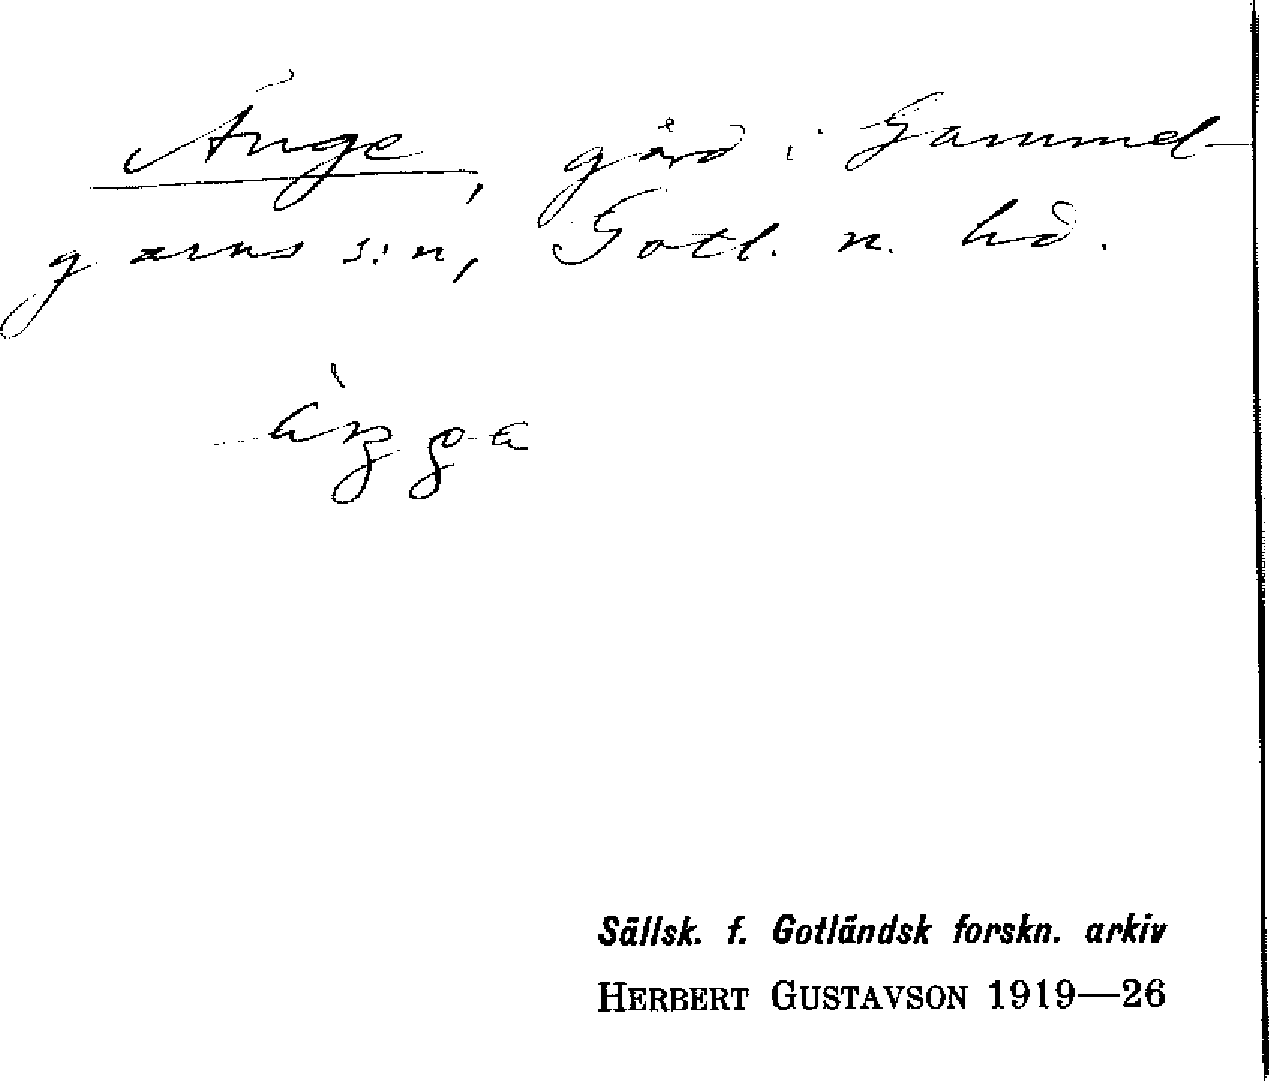 Änge, gård i Gammel-
garns s:n, Gotl. n. hd.
àŋga
Sällsk. f. Gotländsk forskn. arkiv
HERBERT GUSTAVSON 1919—26